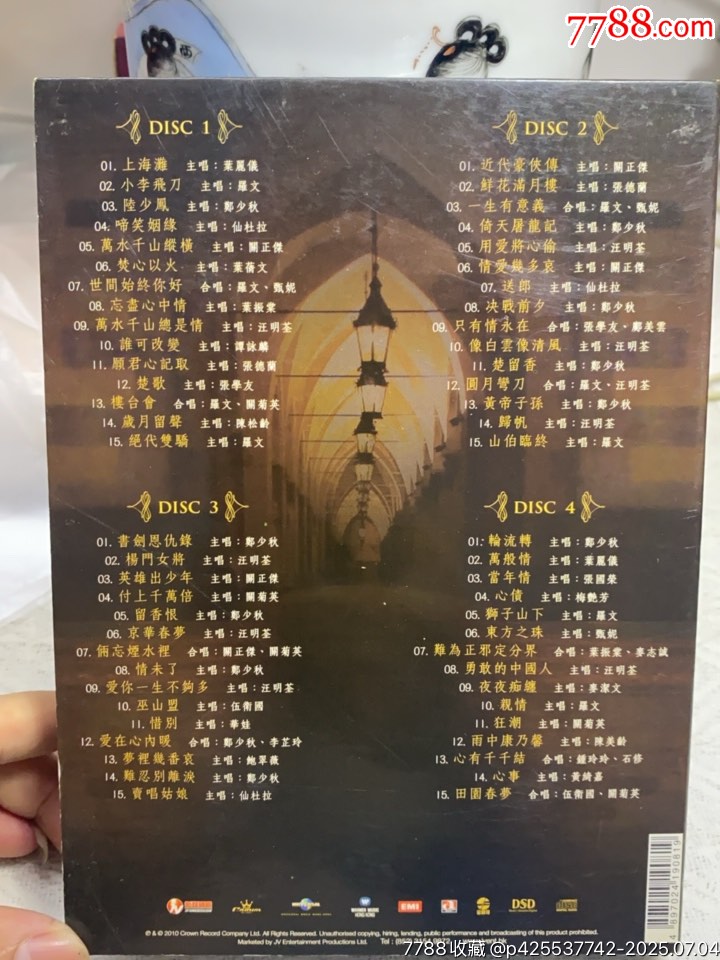 7788.com
DISC 1
01. 上海灘 主唱：葉麗儀
02. 小李飛刀 主唱：羅文
03. 陸少鳳 主唱：鄭少秋
04. 啼笑姻緣 主唱：仙杜拉
05. 萬水千山縱橫 主唱：關正傑
06. 焚心以火 主唱：葉蒨文
07. 世間始終你好 合唱：羅文、甄妮
08. 忘盡心中情 主唱：葉振棠
09. 萬水千山總是情 主唱：汪明荃
10. 誰可改變 主唱：譚詠麟
11. 願君心記取 主唱：張德蘭
12. 楚歌 主唱：張學友
13. 樓台會 合唱：羅文、關菊英
14. 歲月留聲 主唱：陳松齡
15. 絕代雙驕 主唱：羅文
DISC 2
01. 近代豪俠傳 主唱：關正傑
02. 鮮花滿月樓 主唱：張德蘭
03. 一生有意義 合唱：羅文、甄妮
04. 倚天屠龍記 主唱：鄭少秋
05. 用愛將心偷 主唱：汪明荃
06. 情愛幾多哀 主唱：關正傑
07. 送郎 主唱：仙杜拉
08. 決戰前夕 主唱：鄭少秋
09. 只有情永在 合唱：張學友、鄺美雲
10. 像白雲像清風 主唱：汪明荃
11. 楚留香 主唱：鄭少秋
12. 圓月彎刀 主唱：羅文、汪明荃
13. 黃帝子孫 主唱：鄭少秋
14. 歸帆 主唱：汪明荃
15. 山伯臨終 主唱：羅文
DISC 3
01. 書劍恩仇錄 主唱：鄭少秋
02. 楊門女將 主唱：汪明荃
03. 英雄出少年 主唱：關正傑
04. 付上千萬倍 主唱：關菊英
05. 留香恨 主唱：鄭少秋
06. 京華春夢 主唱：汪明荃
07. 倆忘煙水裡 合唱：關正傑、關菊英
08. 情未了 主唱：鄭少秋
09. 愛你一生不夠多 主唱：汪明荃
10. 巫山盟 主唱：伍衛國
11. 惜別 主唱：華娃
12. 愛在心內暖 合唱：鄭少秋、李芷玲
13. 夢裡幾番哀 主唱：鮑翠薇
14. 難忍別離淚 主唱：鄭少秋
15. 賣唱姑娘 主唱：仙杜拉
DISC 4
01. 輪流轉 主唱：鄭少秋
02. 萬般情 主唱：葉麗儀
03. 當年情 主唱：張國榮
04. 心債 主唱：梅艷芳
05. 獅子山下 主唱：羅文
06. 東方之珠 主唱：甄妮
07. 難為正邪定分界 合唱：葉振棠、麥志誠
08. 勇敢的中國人 主唱：汪明荃
09. 夜夜痴纏 主唱：麥潔文
10. 親情 主唱：羅文
11. 狂潮 主唱：關菊英
12. 雨中康乃馨 主唱：陳美齡
13. 心有千千結 合唱：鍾玲玲、石修
14. 心事 主唱：黃綺嘉
15. 田園春夢 合唱：伍衛國、關菊英
4 897024 190819
WARNER MUSIC HONG KONG
EMI
DSD
℗ & © 2010 Crown Record Company Ltd. All Rights Reserved. Unauthorised copying, hiring, lending, public performance and broadcasting of this recording prohibited.
Marketed by JV Entertainment Productions Ltd. Tel :
7788收藏 @p425537742-2025.07.04